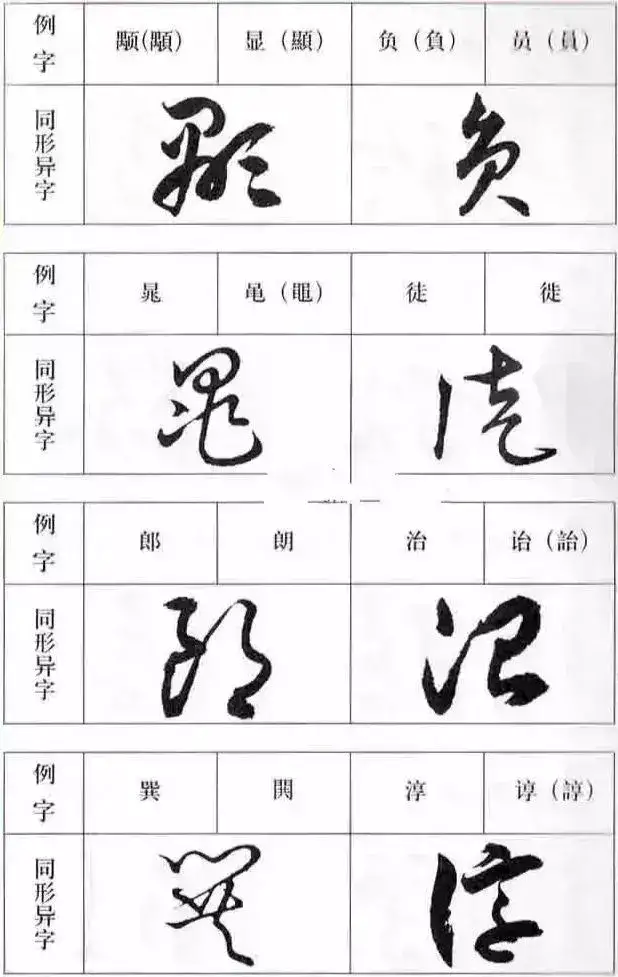 例字 颙(顒) 显（顯） 负（負） 员（員）
同形异字
例字 晁 黾（黽） 徒 徙
同形异字
例字 郎 朗 治 诒（詒）
同形异字
例字 巽 閧 淳 谆（諄）
同形异字